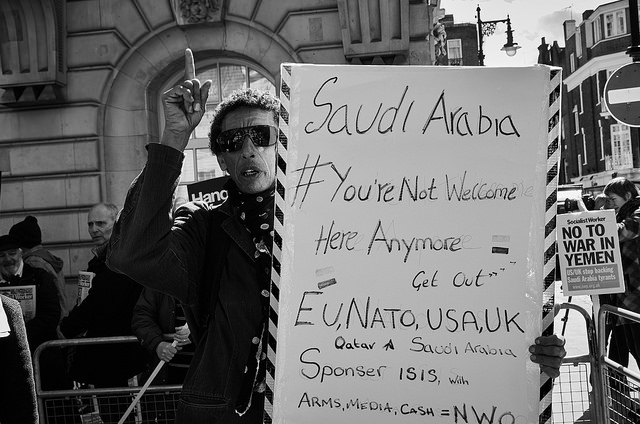 Saudi Arabia
#You're Not Wellcome
Here Anymore
Get Out"""
EU, NATO, USA, UK
Qatar & Saudi Arabia
Sponser ISIS, with
ARMS, MEDIA, CASH = NWO
Hang
Socialist Worker
NO TO
WAR IN
YEMEN
US/UK stop backing
Saudi Arabia tyrants